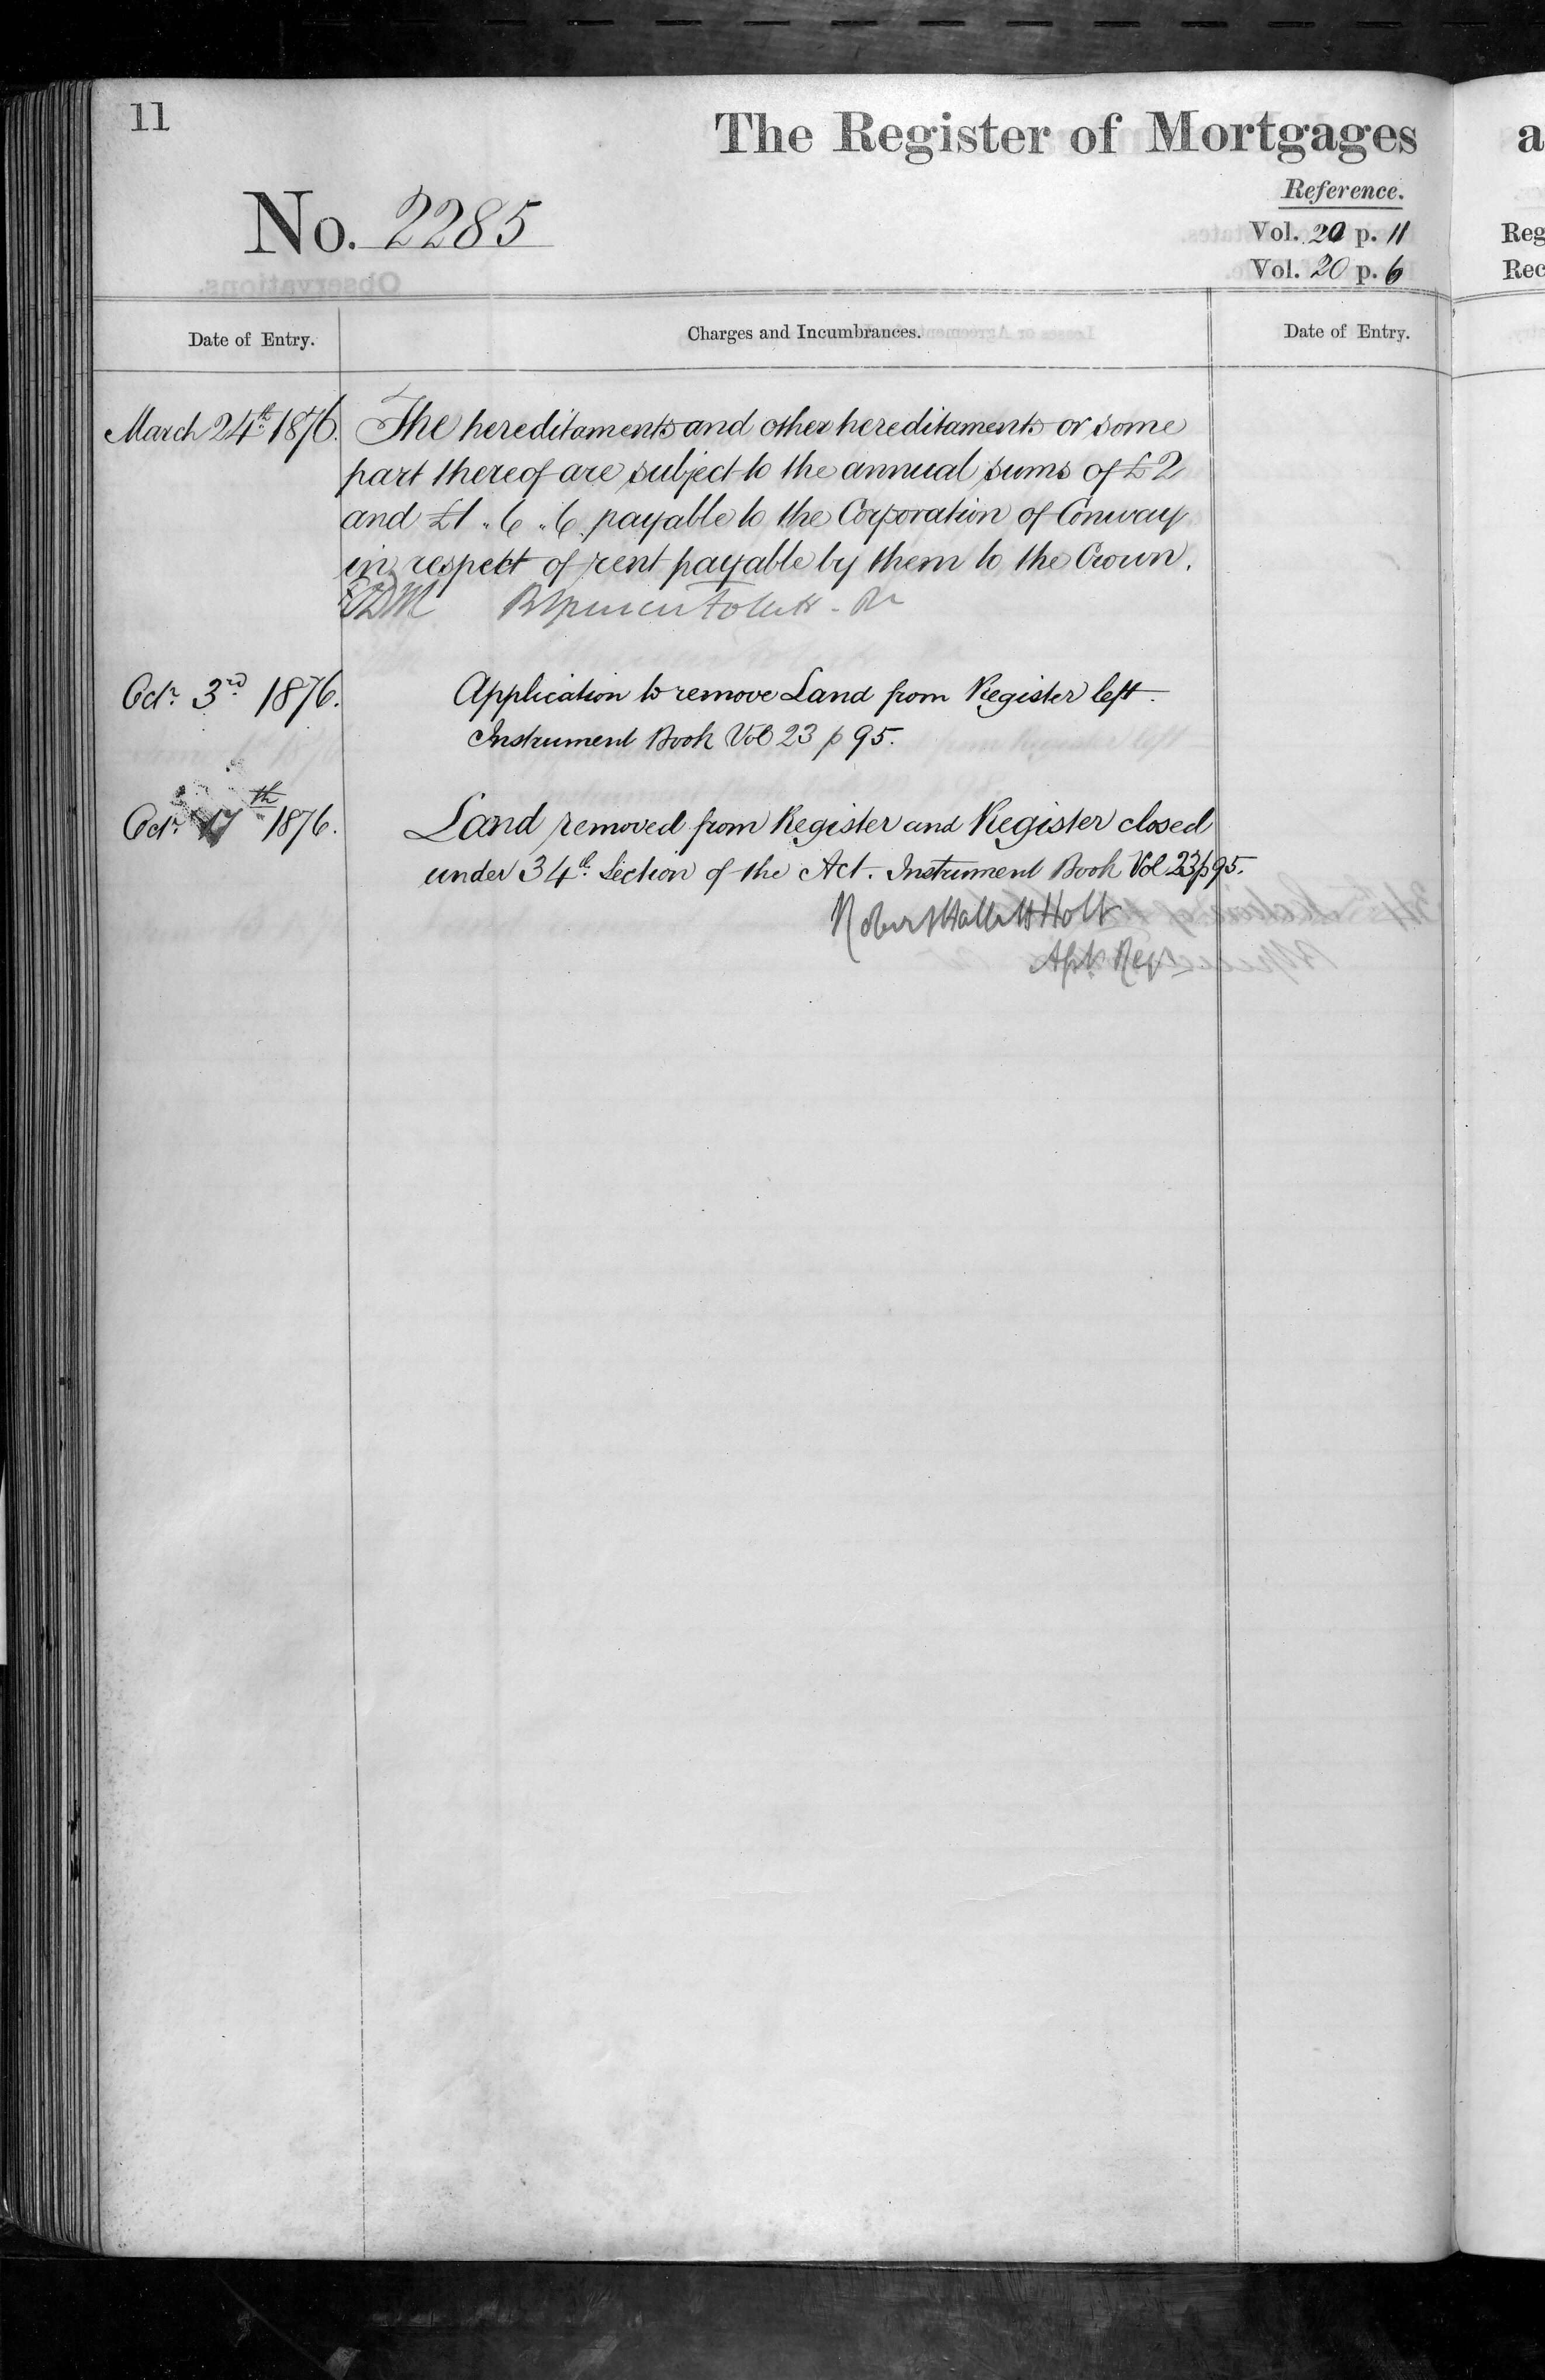 11
The Register of Mortgages
Reference.
No. 2285
Vol. 20 p. 11
Vol. 20 p. 6
Date of Entry.
Charges and Incumbrances.
Date of Entry.
March 24th 1876.
The hereditaments and other hereditaments or some
part thereof are subject to the annual sums of £2
and £1 „ 6 „ 6 payable to the Corporation of Conway
in respect of rent payable by them to the Crown.
Octr 3rd 1876.
Application to remove Land from Register left.
Instrument Book Vol 23 p 95.
Octr 17th 1876.
Land removed from Register and Register closed
under 34th Section of the Act. Instrument Book Vol 23 p 95.
Robert Hallett Holt
Asst Regr
a
Reg
Rec